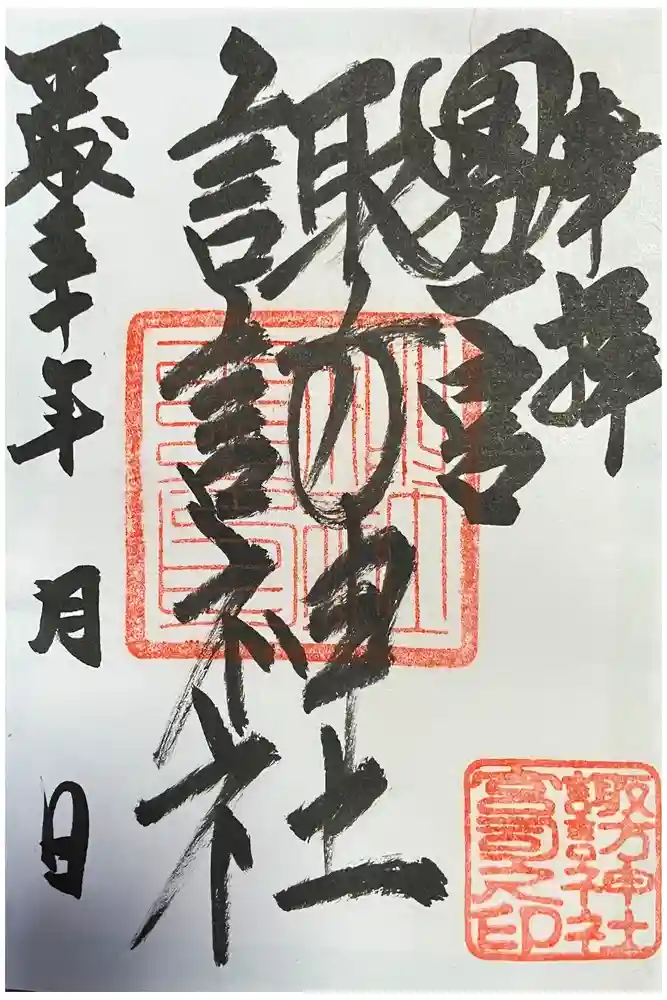 奉拝
諏訪神社
平成三十年 月 日
諏訪神社
宮司之印